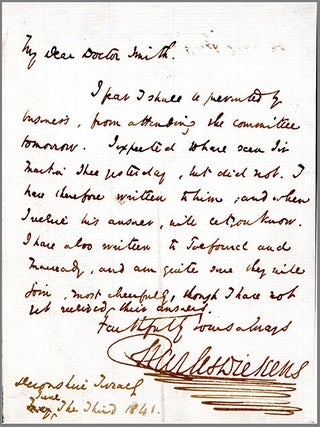 My Dear Doctor Smith.
I fear I shall be prevented by
business, from attending the committee
tomorrow. I expected to have seen Sir
Martin Shee yesterday, but did not. I
have therefore written to him; and when
I receive his answer, will let you know.
I have also written to Talfourd and
Macready, and am quite sure they will
join, most cheerfully, though I have not
yet received their answers.
Faithfully Yours always
Charles Dickens
Devonshire Terrace
June
The Third 1841.